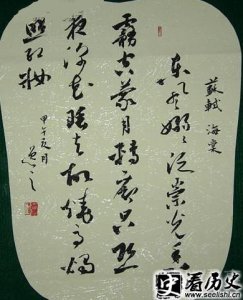 蘇軾 海棠
东风嫋嫋泛崇光香
霧空蒙月轉廊只恐
夜深花睡去故燒高燭
照紅妝
甲午夏月
看历史
www.seelishi.cn